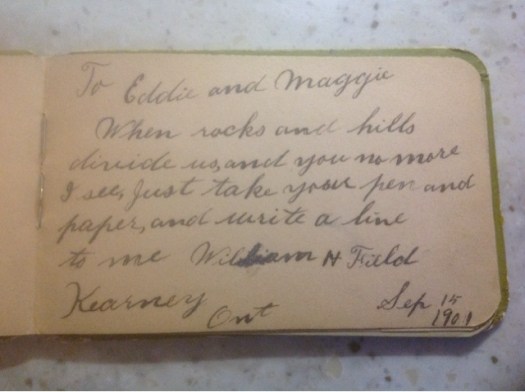 To Eddie and Maggie
When rocks and hills
divide us, and you no more
I see, Just take your pen and
paper, and write a line
to me William H Field
Kearney Ont Sep 15
1901